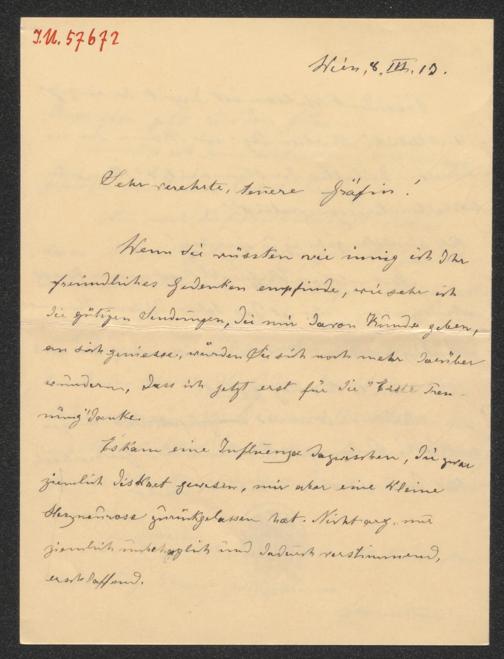 J.N. 57672
Wien, 8. III. 13.
Sehr verehrte, teuere Gräfin!
Wenn Sie wüssten wie innig ich Ihr
freundliches Gedenken empfinde, wie sehr ich
die gütigen Sendungen, die mir davon Kunde geben,
an sich geniesse, würden Sie sich noch mehr darüber
wundern, dass ich jetzt erst für die "Erste Tren-
nung" danke.
Es kam eine Influenza dazwischen, die zwar
ziemlich diskret gewesen, mir aber eine kleine
Herzneurose zurückgelassen hat. Nicht arg, nur
ziemlich unbehaglich und dadurch verstimmend,
erschlaffend.